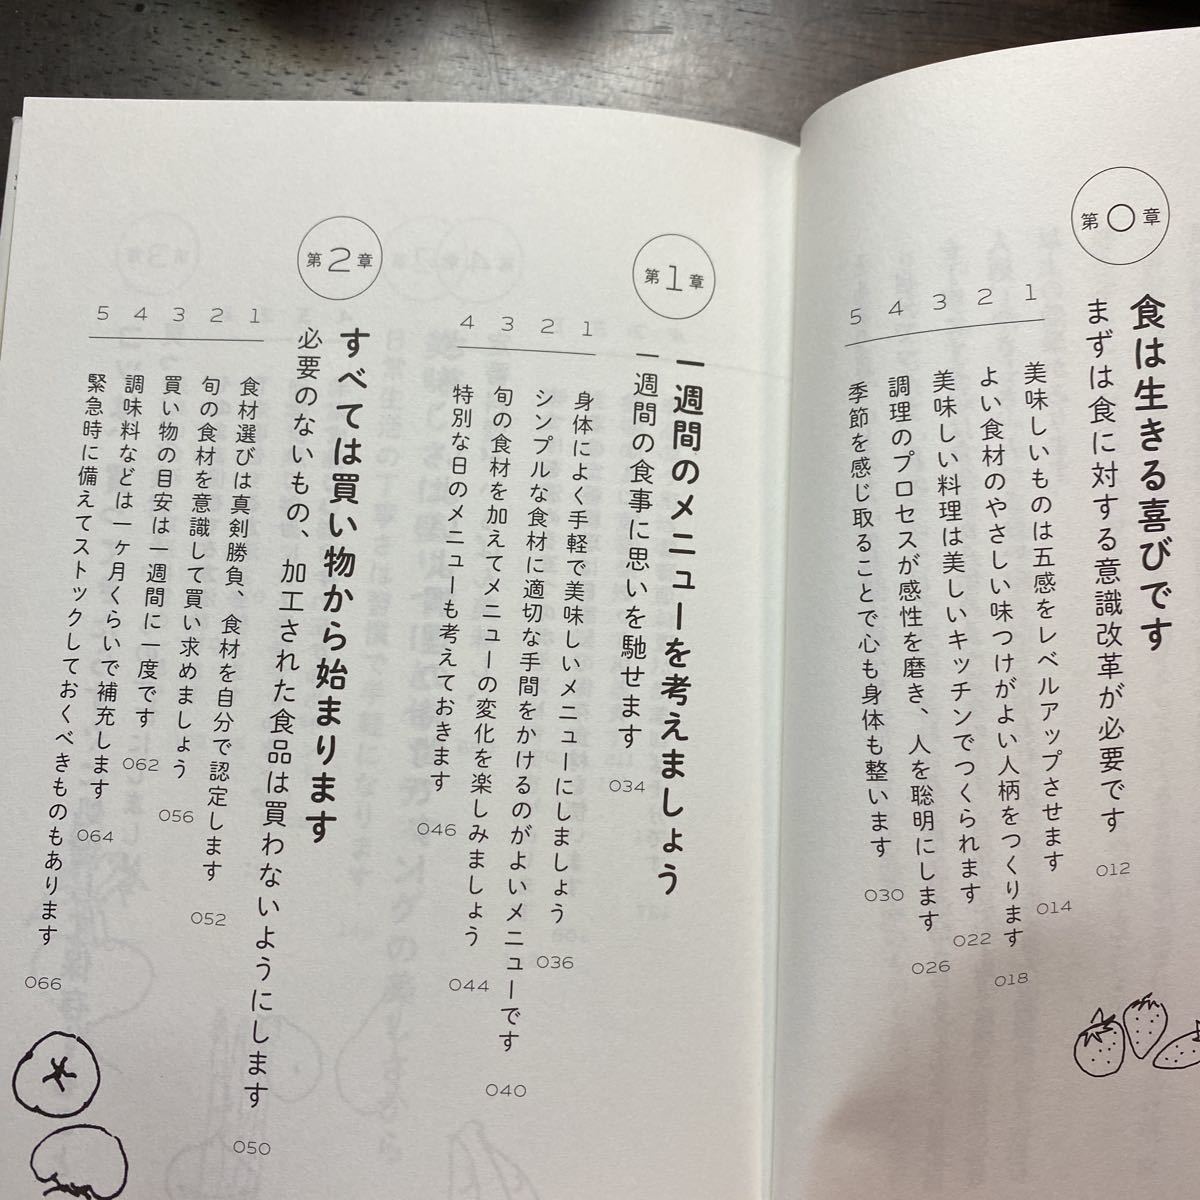 第0章
食は生きる喜びです
まずは食に対する意識改革が必要です 012
1 美味しいものは五感をレベルアップさせます 014
2 よい食材のやさしい味つけがよい人柄をつくります 018
3 美味しい料理は美しいキッチンでつくられます 022
4 調理のプロセスが感性を磨き、人を聡明にします 026
5 季節を感じ取ることで心も身体も整います 030
第1章
一週間のメニューを考えましょう
一週間の食事に思いを馳せます 034
1 身体によく手軽で美味しいメニューにしましょう 036
2 シンプルな食材に適切な手間をかけるのがよいメニューです 040
3 旬の食材を加えてメニューの変化を楽しみましょう 044
4 特別な日のメニューも考えておきます 046
第2章
すべては買い物から始まります
必要のないもの、加工された食品は買わないようにします 050
1 食材選びは真剣勝負、食材を自分で認定します 052
2 旬の食材を意識して買い求めましょう 056
3 買い物の目安は一週間に一度です 062
4 調味料などは一ヶ月くらいで補充します 064
5 緊急時に備えてストックしておくべきものもあります 066